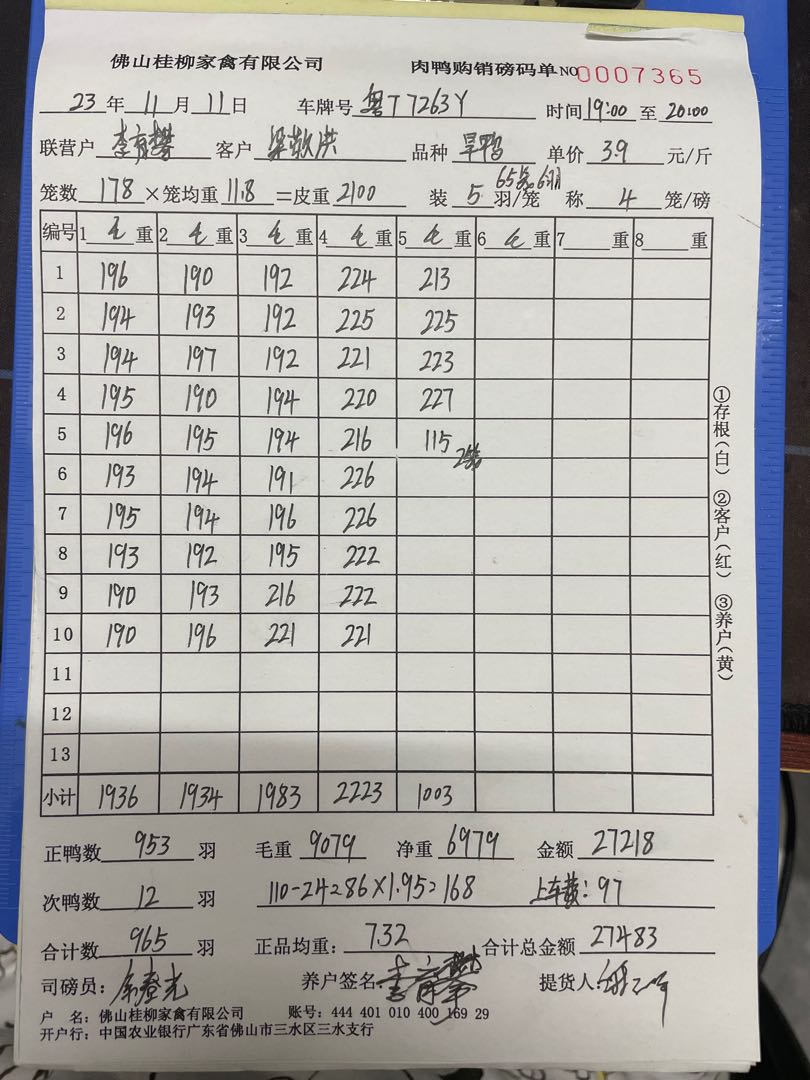 佛山桂柳家禽有限公司 肉鸭购销磅码单 NO 0007365
23年11月11日 车牌号 粤T7263Y 时间 19:00 至 20:00
联营户 李育攀 客户 梁敬洪 品种 旱鸭 单价 3.9 元/斤
65笼6羽
笼数 178 ×笼均重 11.8 =皮重 2100 装 5 羽/笼 称 4 笼/磅
编号 1 毛重 2 毛重 3 毛重 4 毛重 5 毛重 6 毛重 7 重 8 重
1 196 190 192 224 213
2 194 193 192 225 225
3 194 197 192 221 223
4 195 190 194 220 227
5 196 195 194 216 115 2笼
6 193 194 191 226
7 195 194 196 226
8 193 192 195 222
9 190 193 216 222
10 190 196 221 221
11
12
13
小计 1936 1934 1983 2223 1003
①存根(白) ②客户(红) ③养户(黄)
正鸭数 953 羽 毛重 9079 净重 6979 金额 27218
次鸭数 12 羽 110-24=86×1.95=168 上车费:97
合计数 965 羽 正品均重: 7.32 合计总金额 27483
司磅员: 养户签名 李育攀 提货人:
户 名: 佛山桂柳家禽有限公司 账号: 444 401 010 400 169 29
开户行: 中国农业银行广东省佛山市三水区三水支行